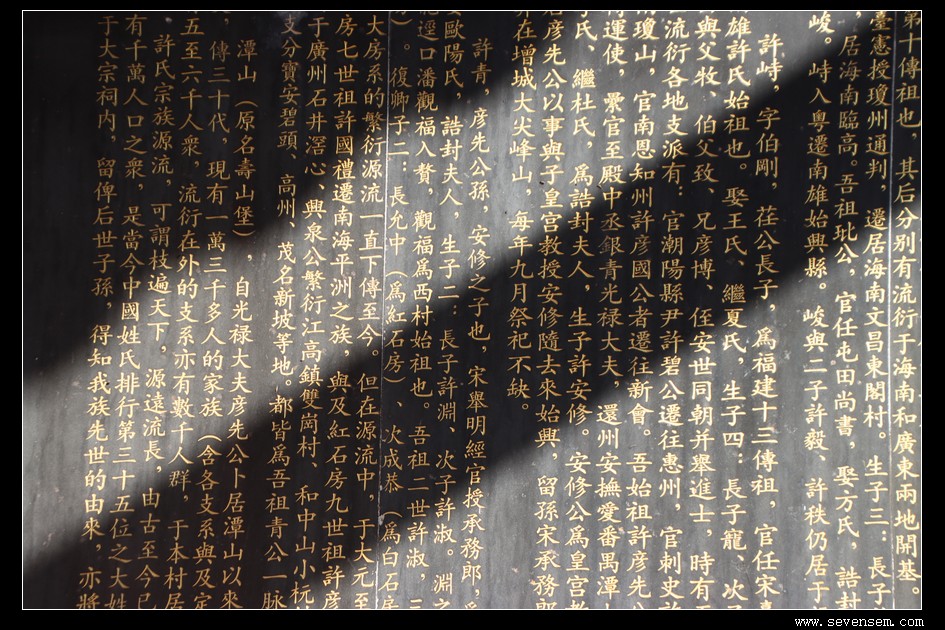 第十傳祖也，其后分别有流衍于海南和廣東兩地開基。
臺憲授瓊州通判，遷居海南文昌東閣村。生子三：長子
居海南臨高。吾祖玭公，官任屯田尚書，娶方氏，誥封
峻。峙入粤遷南雄始興縣。峻與二子許毅、許秩仍居于
許峙，字伯剛，荏公長子，爲福建十三傳祖，官任宋
雄許氏始祖也。娶王氏，繼夏氏，生子四：長子寵，次子
與父牧、伯父致、兄彦博、侄安世同朝并舉進士，時有
流衍各地支派有：官潮陽縣尹許碧公遷往惠州，官刺史許
瓊山，官南恩知州許彦國公者遷往新會。吾始祖許彦先公
轉運使，累官至殿中丞銀青光禄大夫，還州安撫愛番禺潭
氏、繼杜氏，爲誥封夫人，生子許安修。安修公爲皇宫教
彦先公以事與子皇宫教授安修隨去來始興，留孫宋承務郎
在增城大尖峰山，每年九月祭祀不缺。
許青，彦先公孫，安修之子也，宋舉明經官授承務郎，
歐陽氏，誥封夫人，生子二：長子許淵、次子許淑。淵之
逕口潘觀福入贅，觀福爲西村始祖也。吾祖二世許淑，三
）。復卿子二，長允中（爲紅石房）、次成恭（爲白石房
大房系的繁衍源流一直下傳至今。但在源流中，于大元至
房七世祖許國禮遷南海平洲之族，與及紅石房九世祖許彦
于廣州石井滘心、興泉公繁衍江高鎮雙崗村、和中山小杬
支分寶安碧頭、高州、茂名新坡等地。都皆爲吾祖青公一脉
潭山（原名壽山堡），自光禄大夫彦先公卜居潭山以來
，傳三十代，現有一萬三千多人的家族（含各支系與及定
五至六千人衆，流衍在外的支系亦有數千人群，于本村居
許氏宗族源流，可謂枝遍天下，源遠流長，由古至今已
有千萬人口之衆，是當今中國姓氏排行第三十五位之大姓
于大宗祠内，留俾后世子孫，得知我族先世的由來，亦將
www.sevensem.com